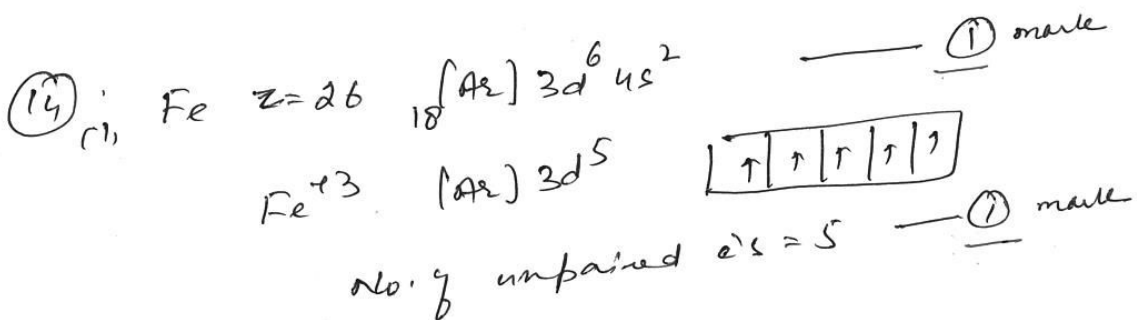 (14) (i) Fe Z=26 18[Ar] 3d⁶ 4s² — (1) mark
Fe⁺³ [Ar] 3d⁵ ↑ ↑ ↑ ↑ ↑
No. of unpaired e's = 5 — (1) mark